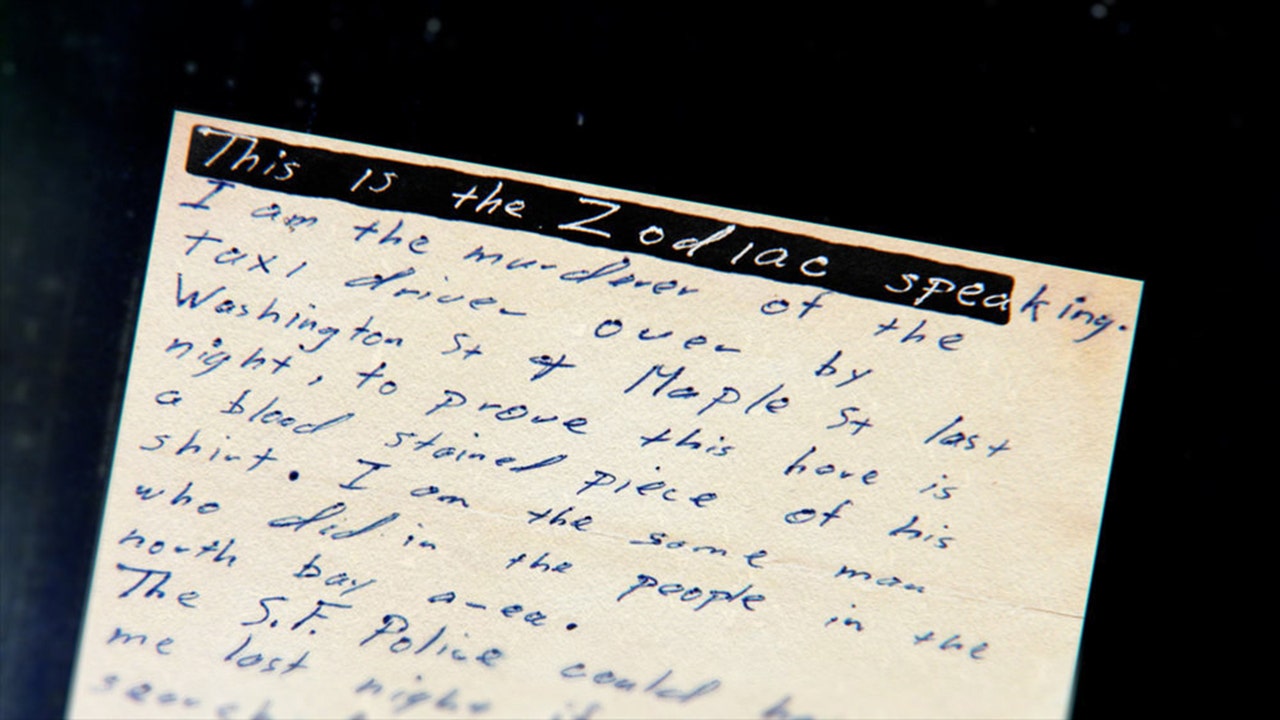 This is the Zodiac speaking.
I am the murderer of the
taxi driver over by
Washington St & Maple St last
night, to prove this here is
a blood stained piece of his
shirt. I am the same man
who did in the people in the
north bay area.
The S.F. Police could
me last night if